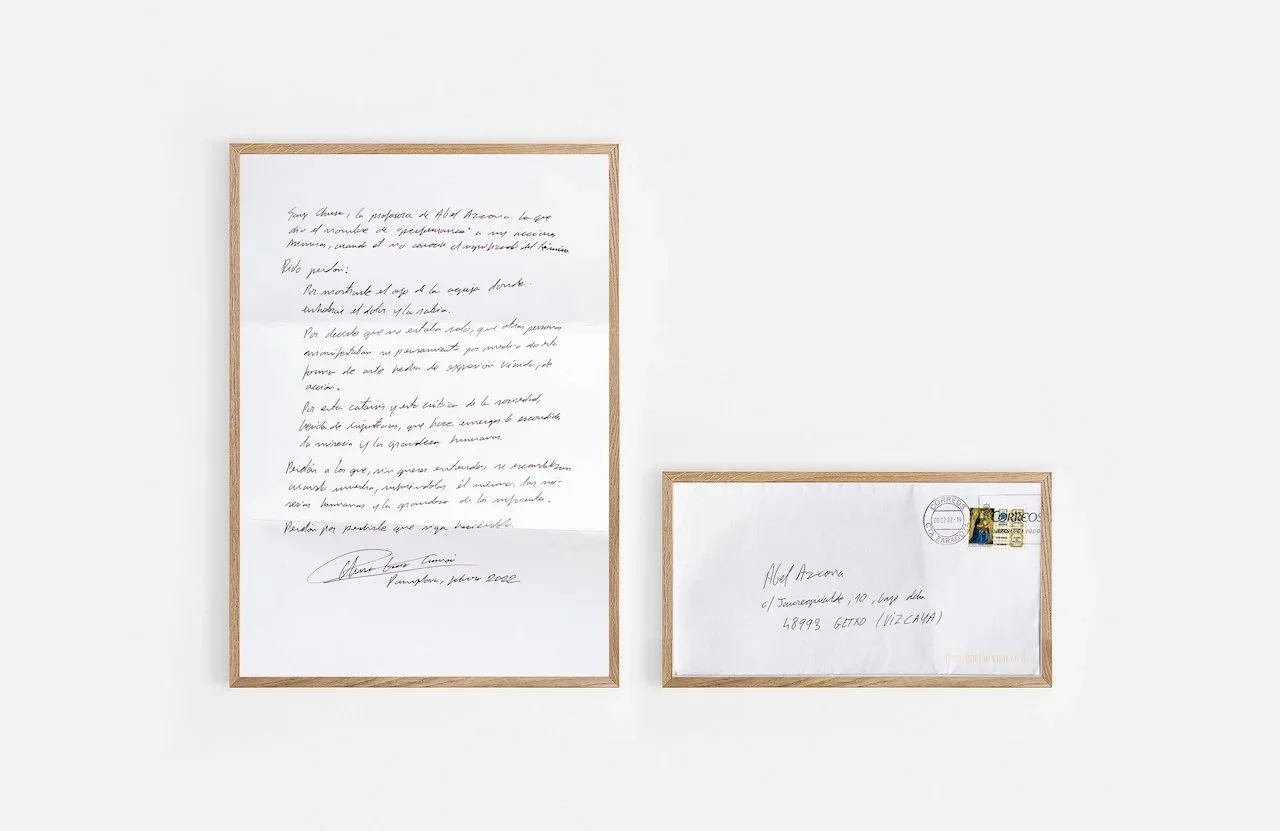 Soy Chusa, la profesora de Abel Azcona. La que
dio el nombre de "performance" a sus acciones
mismas, cuando él no conocía el significado del término.
Pido perdón:
Por mostrarte el ojo de la aguja donde
enhebrar el dolor y la rabia.
Por decirte que no estabas solo, que otras personas
manifestaban su pensamiento por medio de esta
forma de arte hecha de expresión vívida, de
acción.
Por esta catarsis y esta crítica de la sociedad,
herida de injusticias, que hace emerger lo escondido,
la miseria y la grandeza humanas.
Perdón a los que, sin querer entender, se escandalizan
cuando muestra, él mismo, las mi-
serias humanas y la grandeza de los
Perdón por pedirte que siga haciéndolo.
Chusa
Pamplona, febrero 2022
CORREOS
CTA. ZARAGOZA
CORREOS
Abel Azcona
c/ Jaureguialde, 10, bajo dcha
48993 GETXO (VIZCAYA)